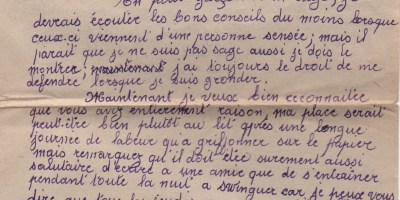 devrais écouter les bons conseils du moins lorsque
ceux-ci viennent d'une personne sensée; mais il
parait que je ne suis pas sage aussi je dois le
montrer, maintenant j'ai toujours le droit de me
défendre lorsque je suis gronder.
Maintenant je veux bien reconnaitre
que vous avez entièrement raison, ma place serait
peut-être bien plutôt au lit après une longue
journée de labeur qu'a griffonner sur le papier
mais remarquez qu'il doit être surement aussi
salutaire d'écrire a une amie que de s'entrainer
pendant toute la nuit a swinguer car je peux vous
dire que tous les